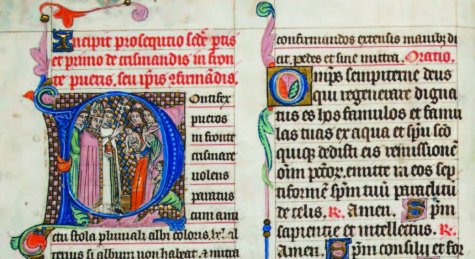 Incipit prosequtio scde ptis
et primo de crismandis in fron
te pueris, seu ipis 9firmādis.
Pontifex
pueros
in fronte
crismare
uolens
paratus
cum amic
tu stola pluuiali albi coloris, uel al
terius si album non habeat, & mitra
confirmandos extensis manibʒ di
cit. pedes et sine mittra. Oratio.
Omps sempiterne deus
qui regenerare digna
tus es hos famulos et famu
las tuas ex aqua et spu sco
quiqʒ dedisti eis remissionē
oīm pctor. emitte in eos sep
tiformē spm tuū paraclitū
de celis. R. Amen. Spm
sapientie et intellectus. R.
Amen. Spm consilij et for